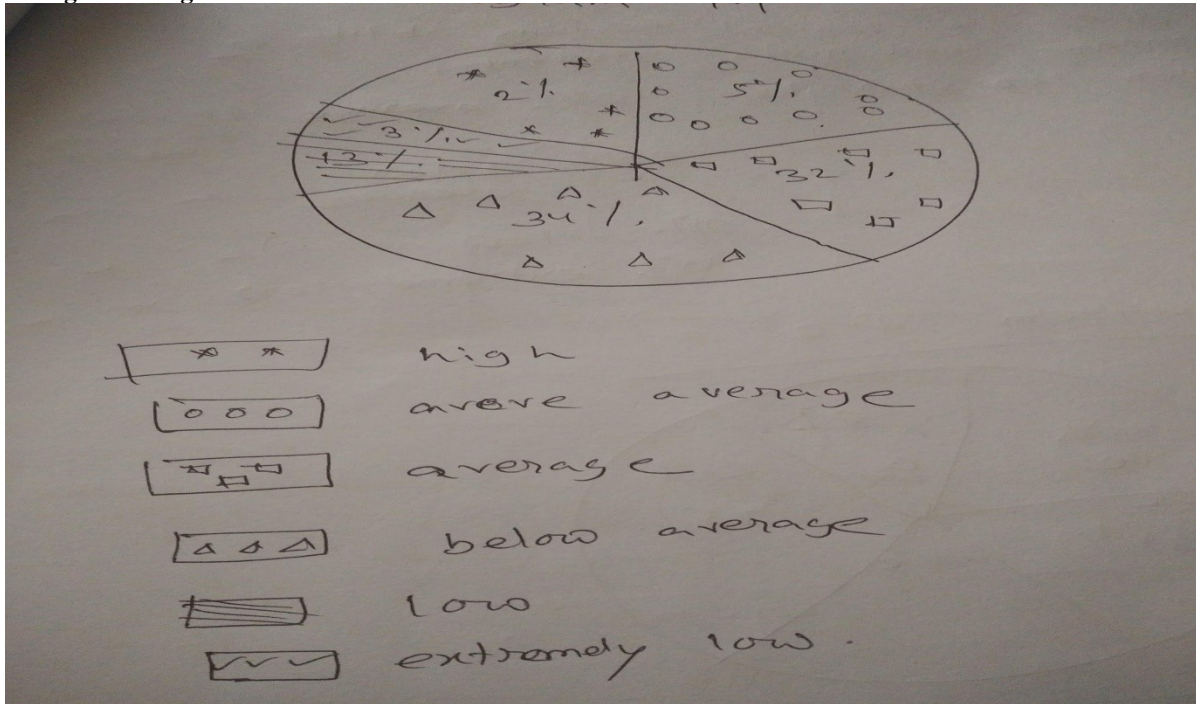 2%
5%
3%
13%.
32%.
34%.
high
avove average
average
below average
low
extremely low.